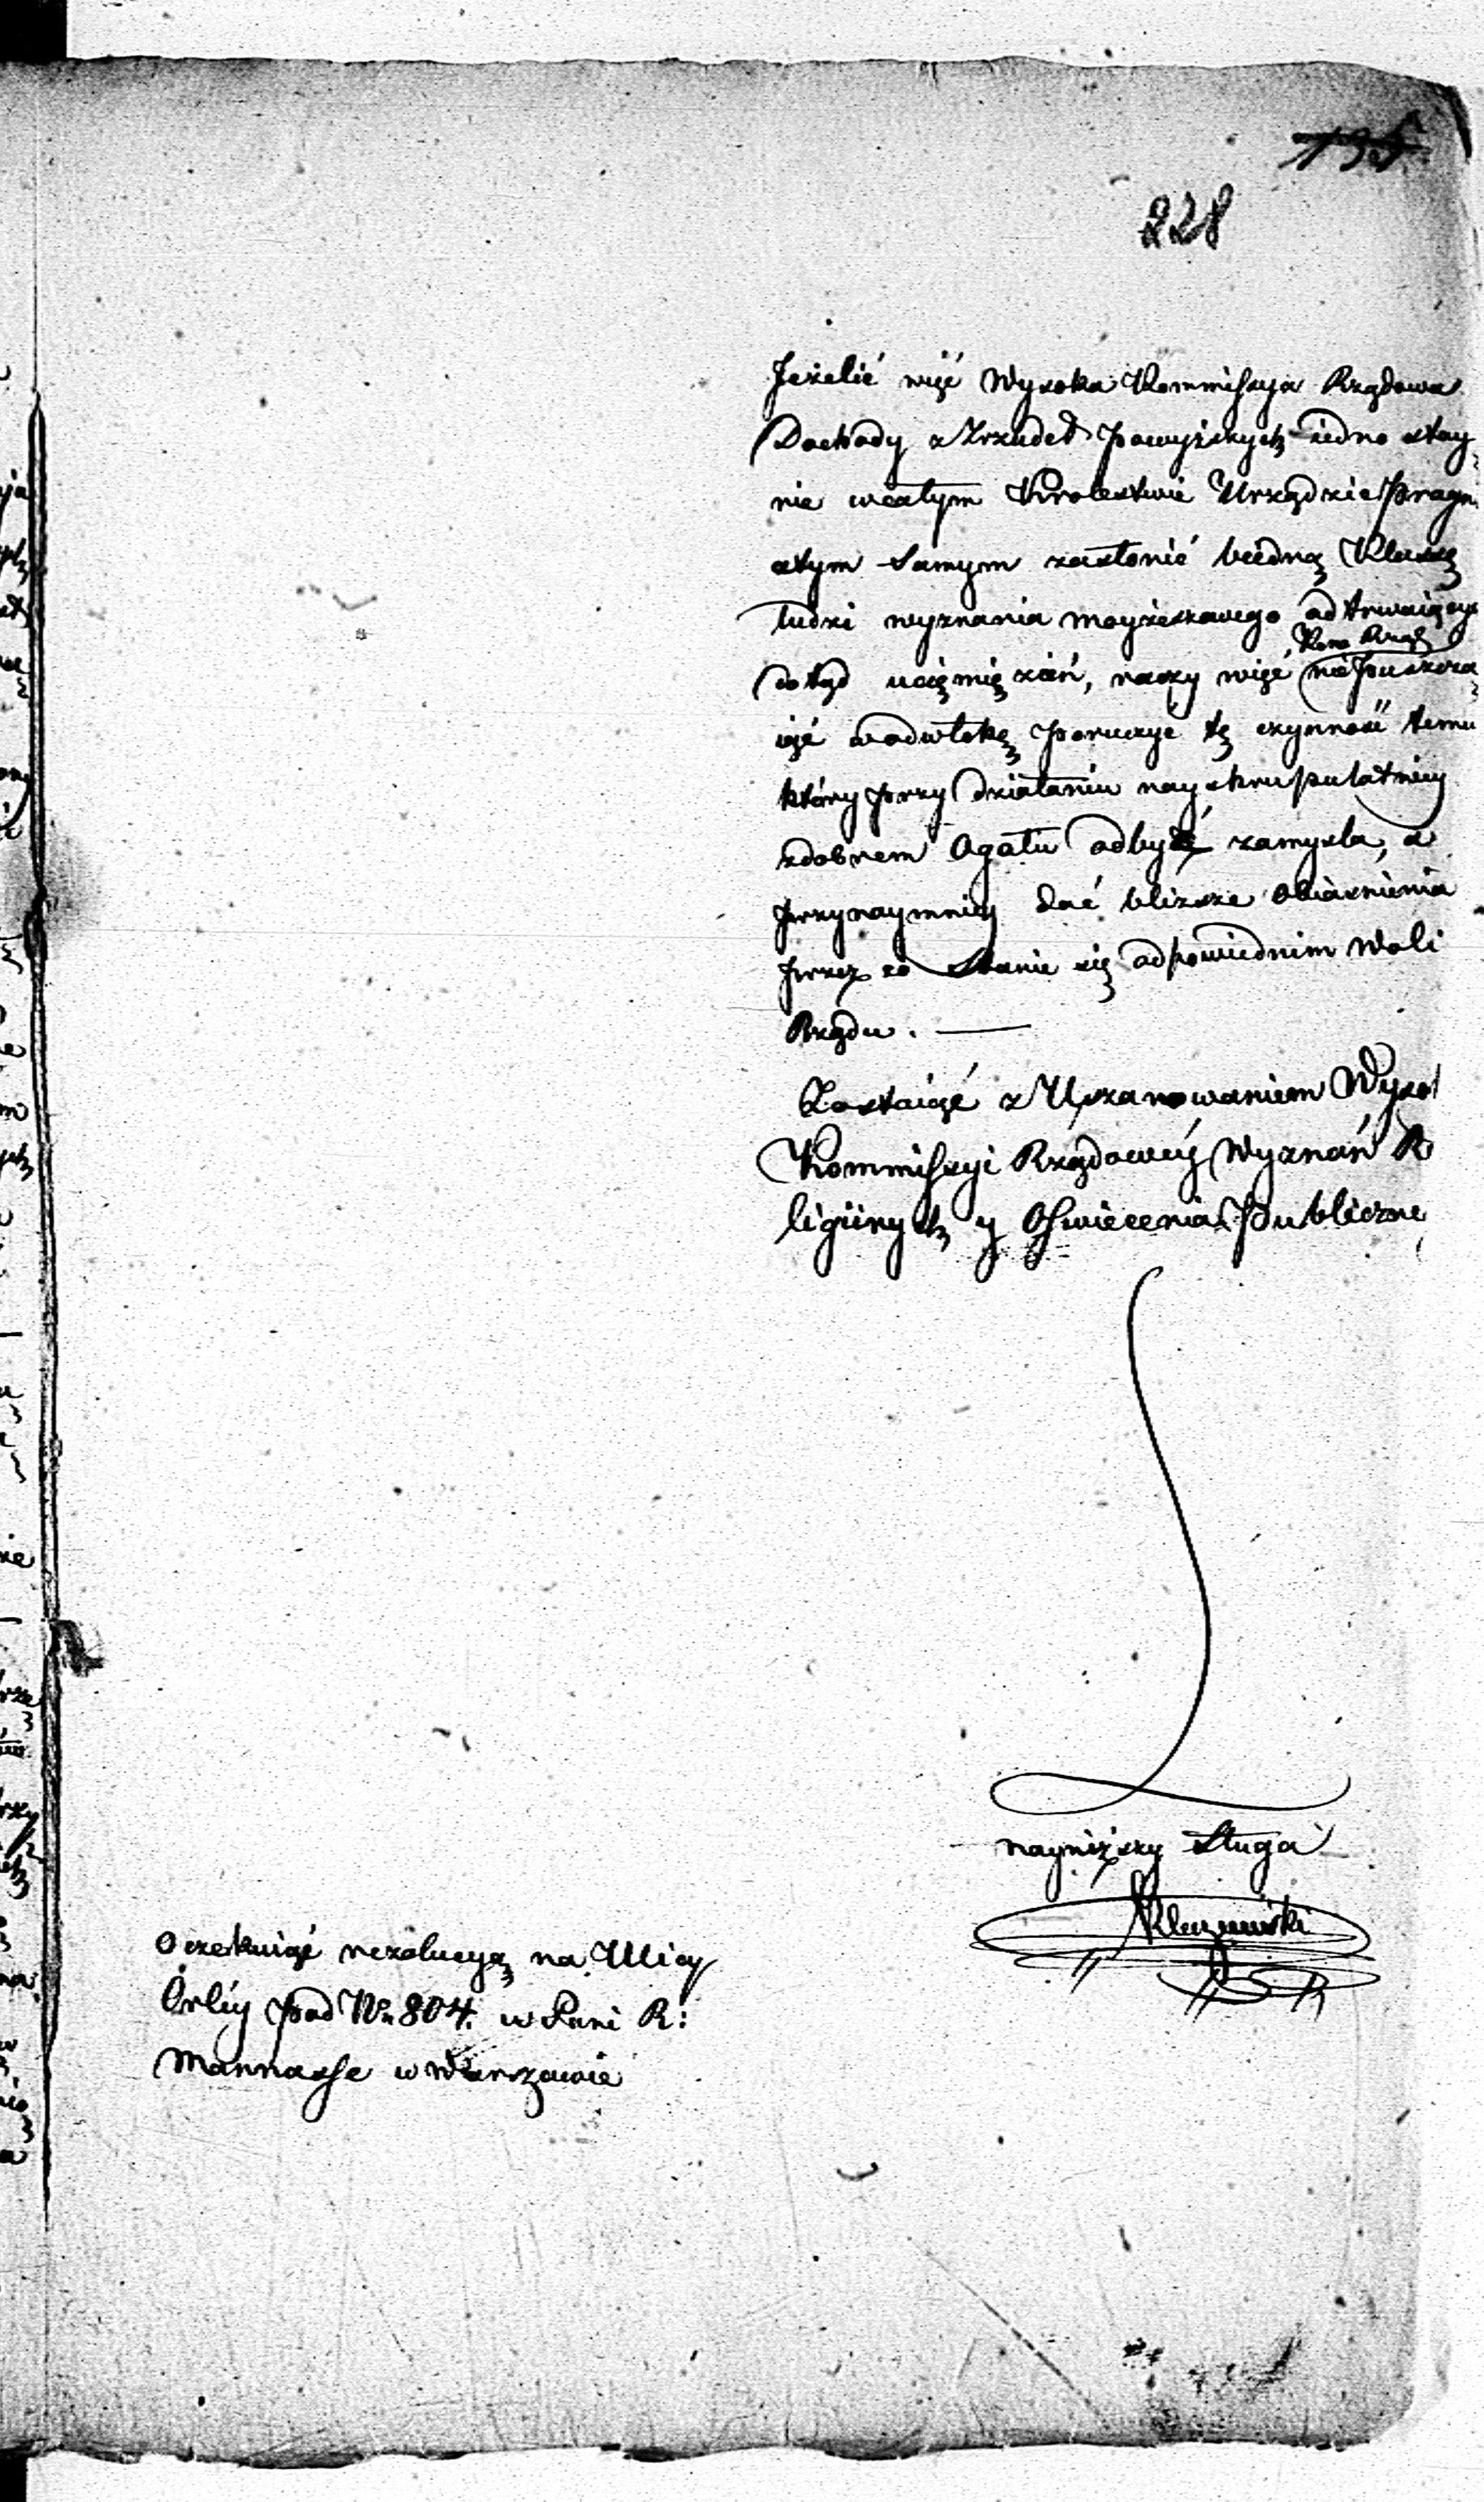 195
228
Jeżelić więć Wysoka Kommissyia Rządowa
Dochody z Zrzudeł powyższych iedno stay
nie wcałym Krolestwie Urządzić pragn
atym samym zasłonić biedną Klassę
ludzi wyznania moyżeszowego od trwaiącyc
Kom Rząd
dotąd ucięmiężień, raczy więć nie puszcza
iąć wodwłokę poruczyć tę czynność temu
który przy działaniu nayskrupulatniey
zdobrem Ogółu odbydź zamysla, a
przynaymniey dać bliższe Obiasnienia
przez co stanie się odpowiednim Woli
Rządu. —
Zostaiąć z Uszanowaniem Wyso
Kommissyi Rządowéy Wyznań R
ligiinych y Oswiecenia Publiczne
nayniższy sługa
Oczekuiąć rezolucyą na Ulicy
Orléy pod Nr 804. w Pani R:
Mannasse w Warszawie